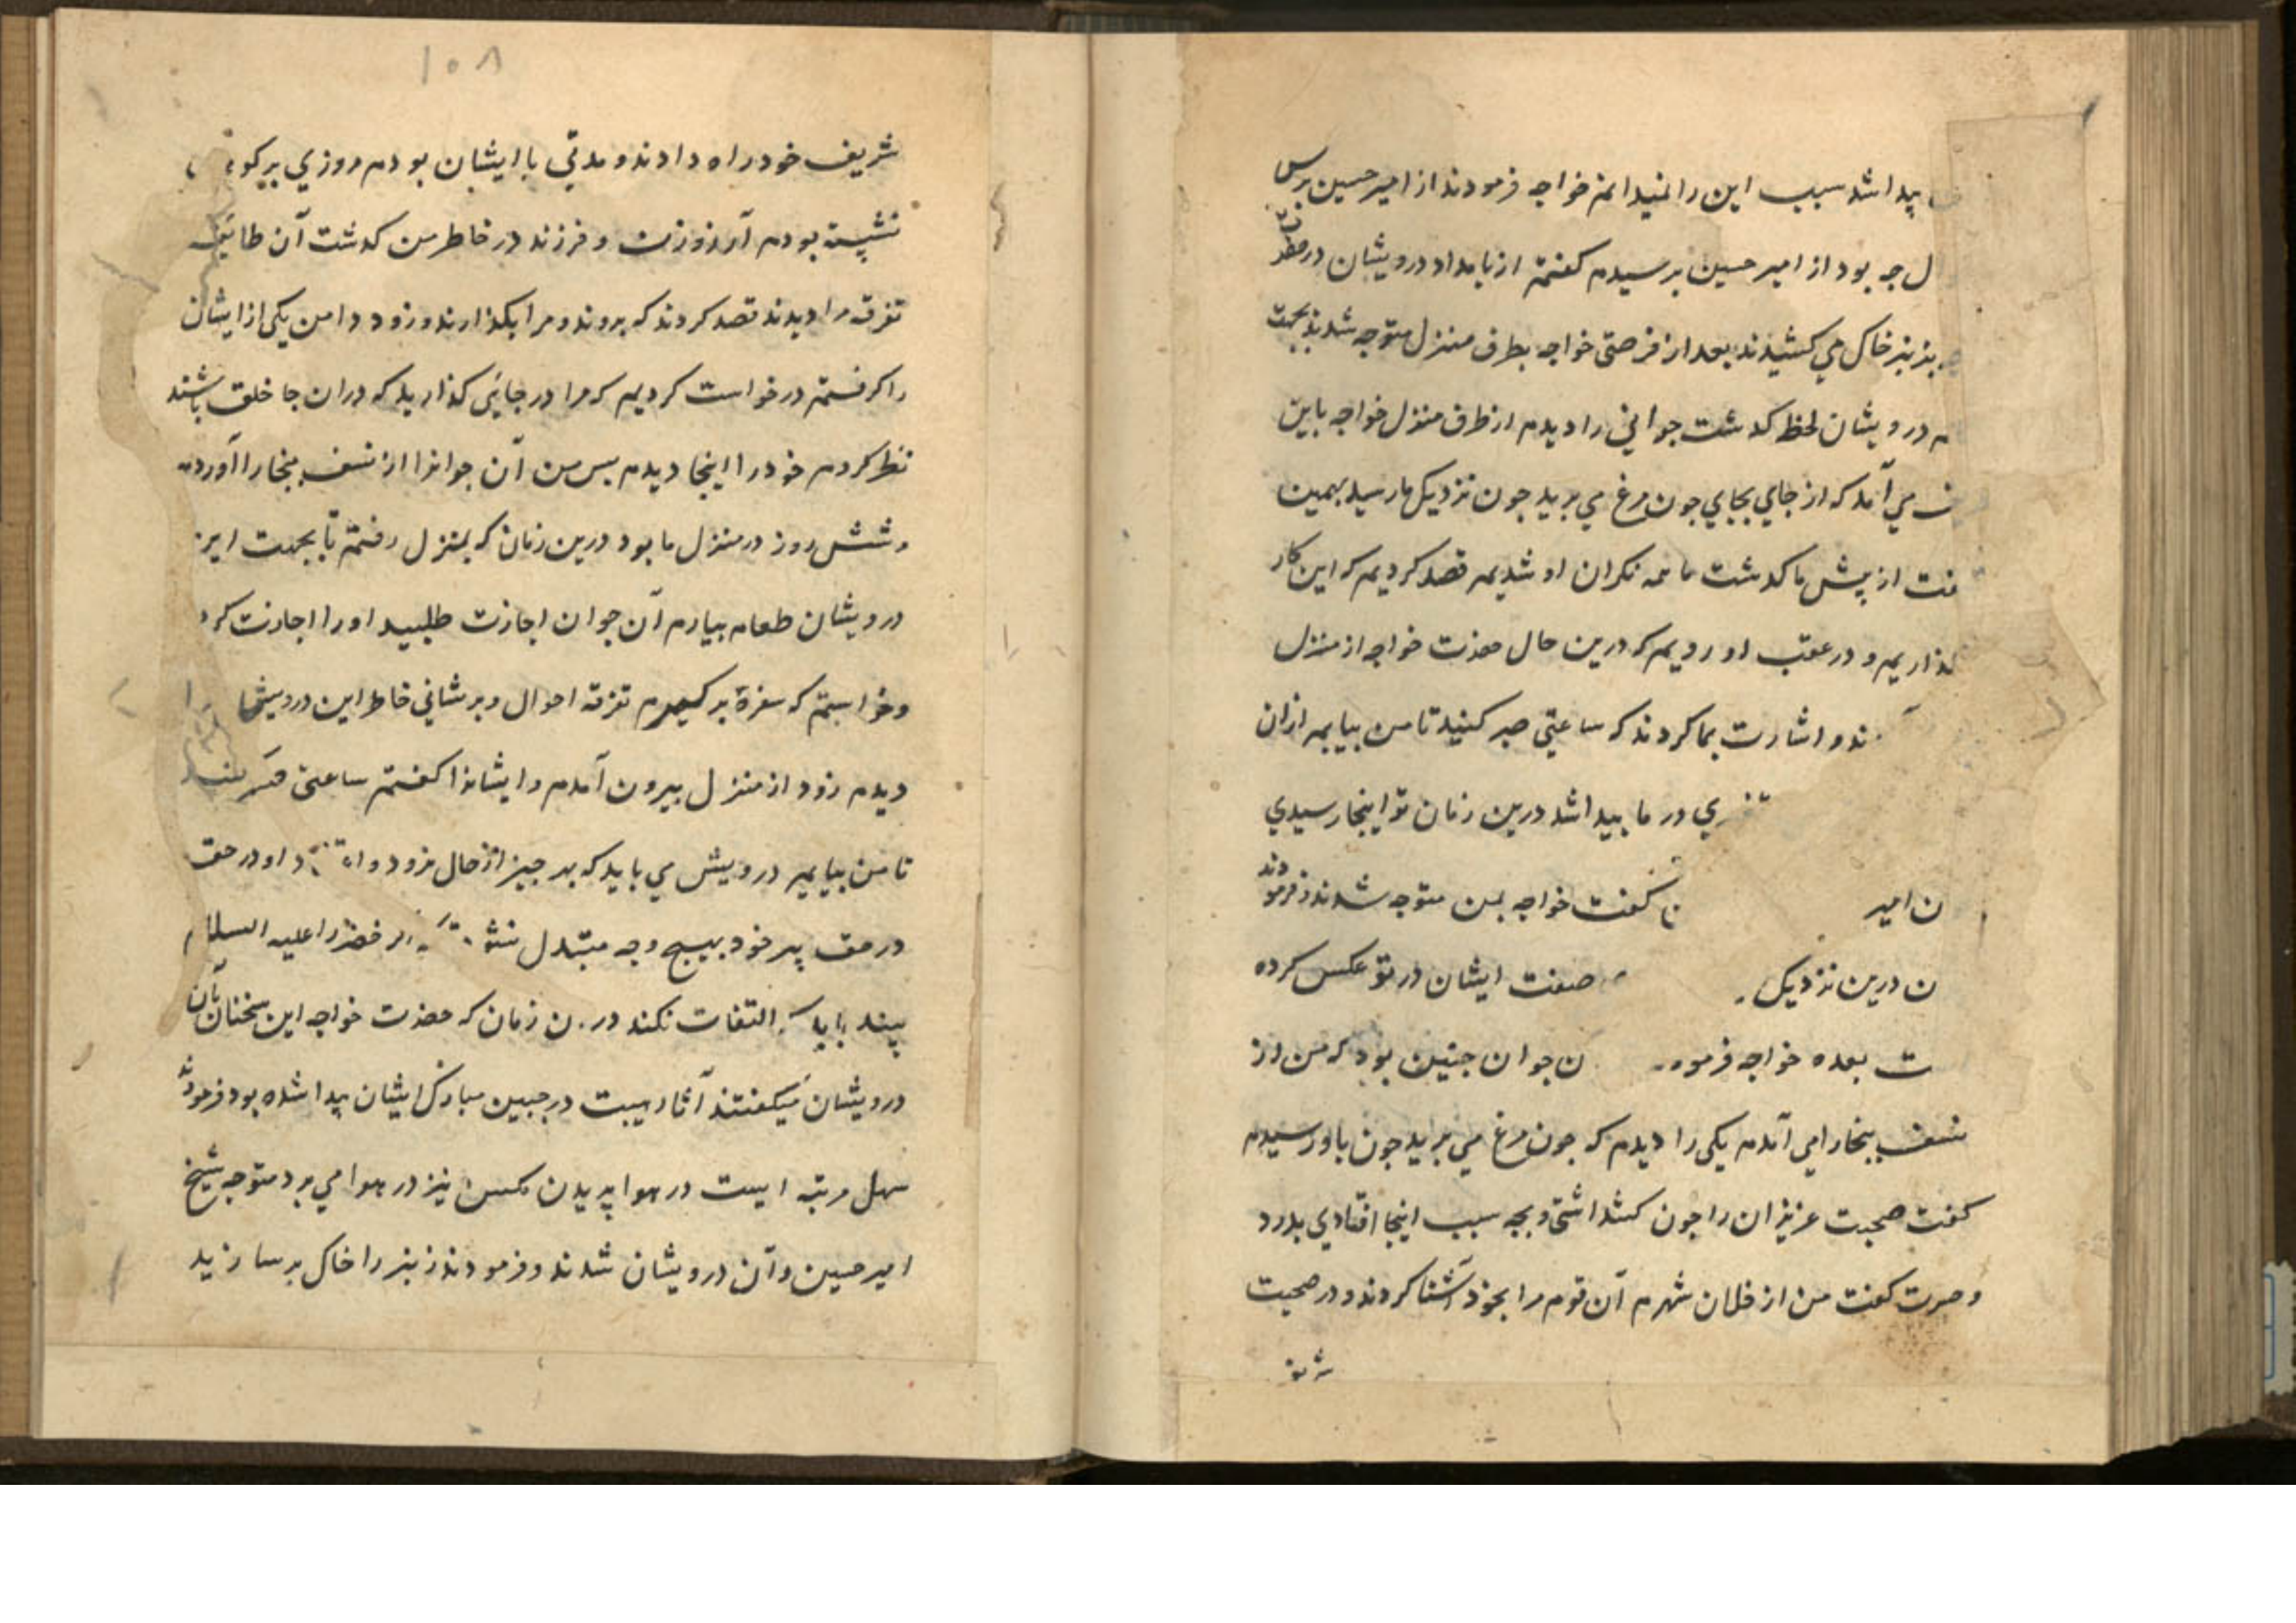 پیدا شد سبب این را نمیدانم خواجه فرمودند از امیر حسین برس
جه بود از امیر حسین برسیدم کفتم از بامداد درویشان در
خاک می کشیدند بعد از فرصتی خواجه بطرف منزل متوجه شدند بجهت
درویشان لحظه کدشت جوانی را دیدم از طرف منزل خواجه باین
می آمد که از جای بجای جون مرغ می برید جون نزدیک ما رسید بهمین
از پیش ما کدشت ما همه نکران او شدیم قصد کردیم که این کار
کذاریم و در عقب او رویم که درین حال حضرت خواجه از منزل
ند و اشارت بما کردند که ساعتی صبر کنید تا من بیایم ازان
در ما پیدا شد درین زمان تو اینجا رسیدی
ن امیر کفت خواجه بمن متوجه شدند و فرمودند
ن درین نزدیک صفت ایشان در تو عکس کرده
ت بعده خواجه فرموده ن جوان جنین بود که من از
نسف ببخارا می آمدم یکی را دیدم که جون مرغ می برید جون باو رسیدم
کفت صحبت عزیزان را جون کذاشتی و بجه سبب اینجا افتادی بدرد
و حسرت کفت من از فلان شهرم آن قوم مرا بخود آشنا کردند و در صحبت
شریف
۱۰۸
شریف خود راه دادند و مدتی با ایشان بودم روزی بر کوه
نشسته بودم آرزو زن و فرزند در خاطر من کدشت آن طایفه
تفرقه مرا دیدند قصد کردند که بروند و مرا بکذارند و زود دامن یکی از ایشان
را کرفتم درخواست کردیم که مرا در جایی کذارید که دران جا خلق باشند
نظر کردم خود را اینجا دیدم بس من آن جوانرا از نسف ببخارا آوردم
و شش روز در منزل ما بود درین زمان که بمنزل رفتم تا بجهت این
درویشان طعام بیارم آن جوان اجازت طلبید او را اجازت کرد
و خواستم که سفرهٔ بر کیرم تفرقه احوال و بریشانی خاطر این درویشان را
دیدم زود از منزل بیرون آمدم و ایشانرا کفتم ساعتی صبر کنید
تا من بیایم درویش می باید که بهر جیز از حال نرود و اعتقاد او در حق
در حق پیر خود بهیچ وجه متبدل نشود که اکر خضر را علیه السلام
بیند باید که التفات نکند در ن زمان که حضرت خواجه این سخنان بآن
درویشان میکفتند آثار هیبت در جبین مبارک ایشان پیدا شده بود فرمودند
سهل مرتبه ایست در هوا پریدن مکس نیز در هوا می برد متوجه شیخ
امیر حسین و آن درویشان شدند و فرمودند زنبر را خاک بر سازید